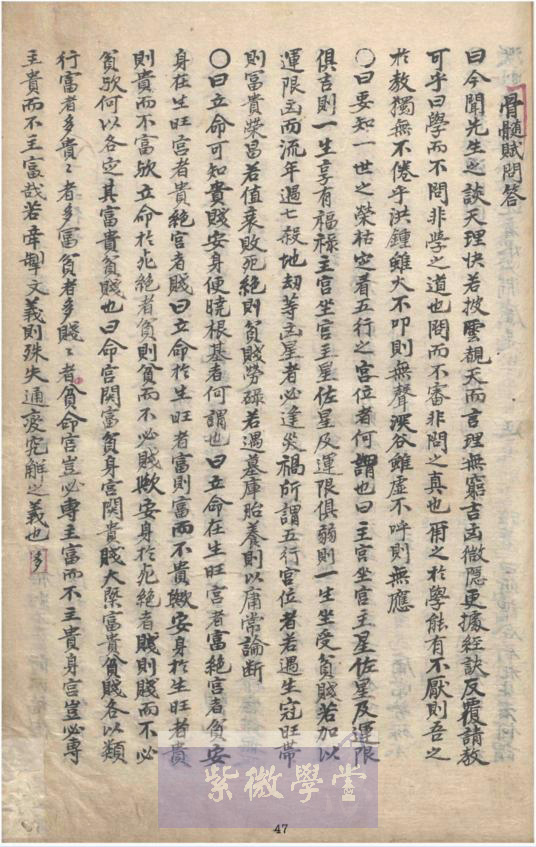 骨髓賦問答
曰今聞先生之談天理快若披雲覩天而言理無窮吉凶微隱更據經訣反覆請教
可乎曰學而不問非學之道也問而不審非問之真也爾之於學能有不厭則吾之
於教獨無不倦乎洪鍾雖大不叩則無聲深谷雖虛不呼則無應
○曰要知一世之榮枯定看五行之宮位者何謂也曰主宮坐宮主星佐星及運限
俱吉則一生享有福祿主宮坐宮主星佐星及運限俱弱則一生坐受貧賤若加以
運限凶而流年遇七殺地劫等凶星者必逢災禍所謂五行宮位者若遇生冠旺帶
則富貴榮昌若值衰敗死絕則貧賤勞碌若遇墓庫胎養則以庸常論斷
○曰立命可知貴賤安身便曉根基者何謂也曰立命在生旺宮者富絕宮者貧安
身在生旺宮者貴絕宮者賤曰立命於生旺者富則富而不貴歟安身於生旺者貴
則貴而不富歟立命於死絕者貧則貧而不必賤歟安身於死絕者賤則賤而不必
貧歟何以各定其富貴貧賤也曰命宮関富貧身宮関貴賤大槩富貴貧賤各以類
行富者多貴〻者多富貧者多賤〻者貧命宮豈必專主富而不主貴身宮豈必專
主貴而不主富哉若牽掣文義則殊失通变究解之義也
多
紫微學堂
47